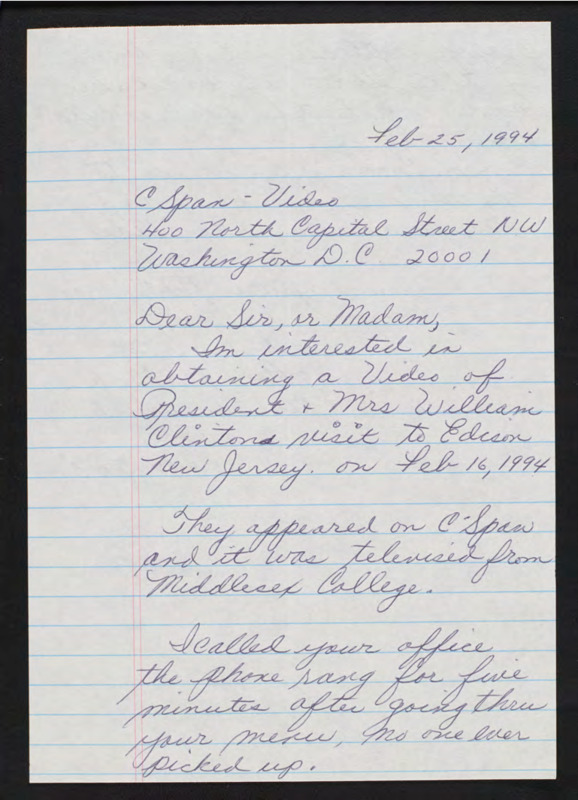 Feb 25, 1994
C Span - Video
400 North Capital Street NW
Washington D.C. 20001
Dear Sir, or Madam,
Im interested in
obtaining a Video of
President + Mrs William
Clintons visit to Edison
New Jersey. on Feb 16, 1994
They appeared on C-Span
and it was televised from
Middlesex College.
I called your office
the phone rang for five
minutes after going thru
your menu, no one ever
picked up.